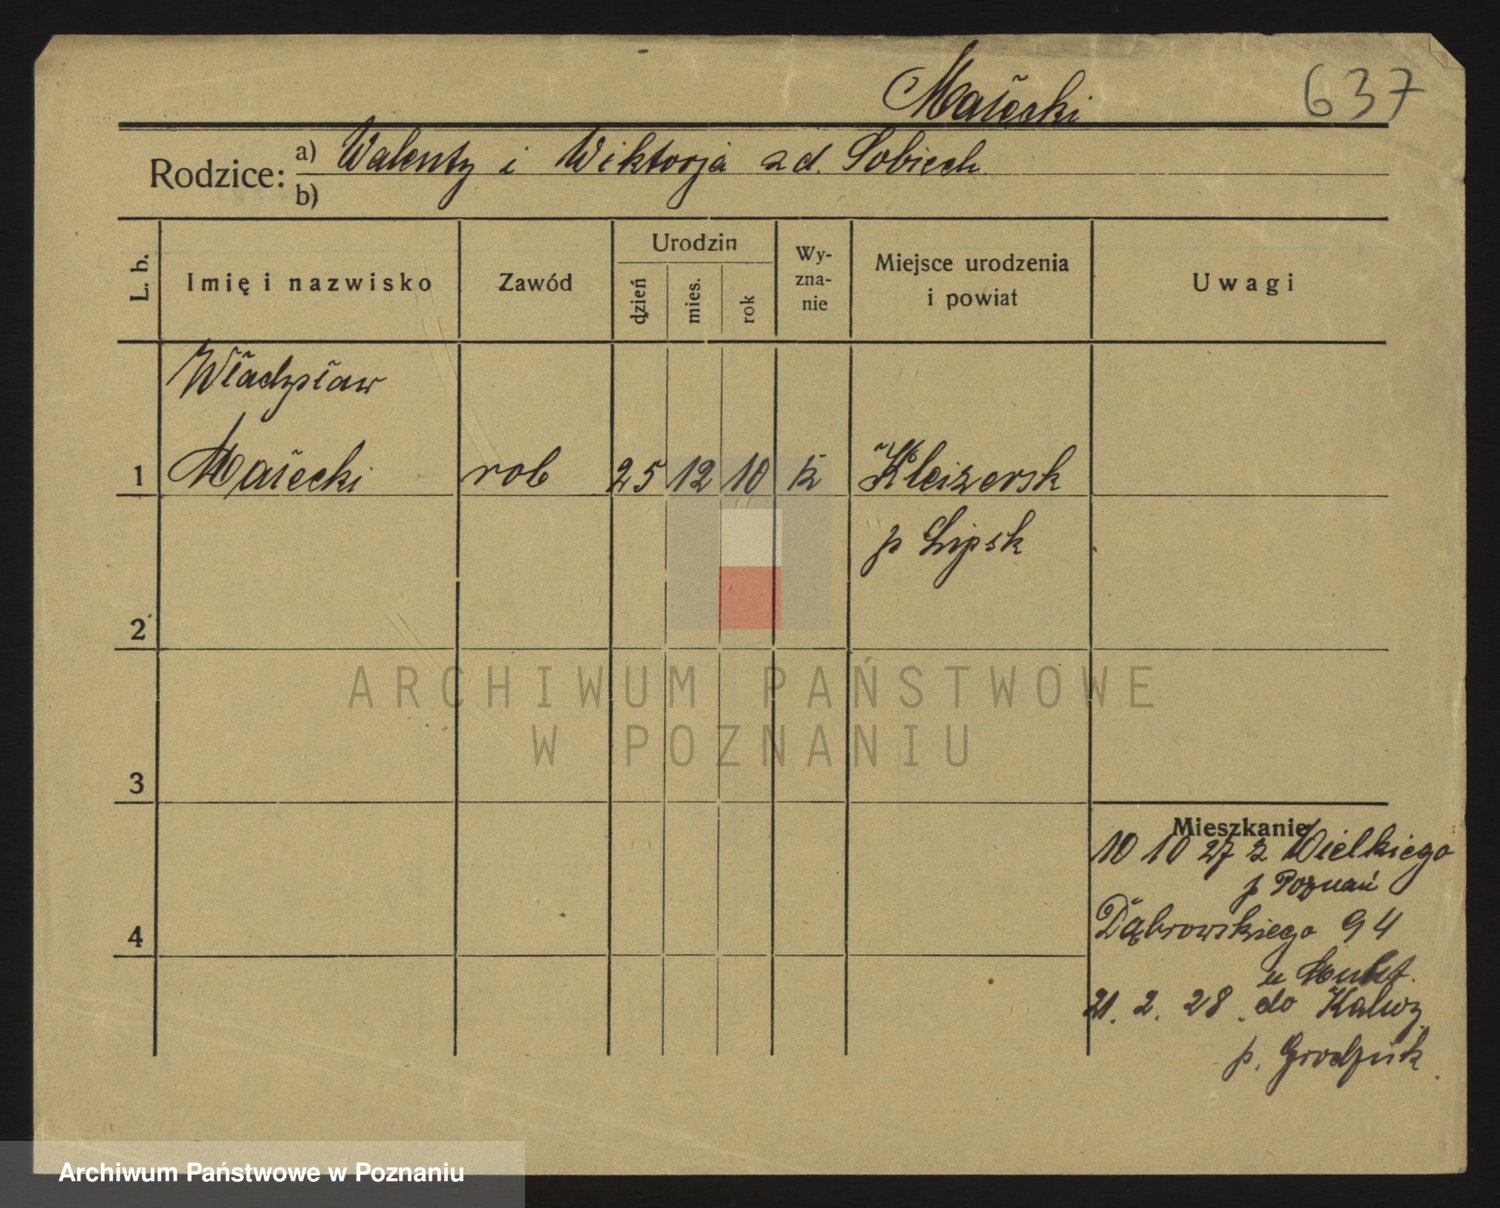 Małecki 637
Rodzice: a) Walenty i Wiktorja zd. Sobiech
b)
L. b. Imię i nazwisko Zawód Urodzin dzień mies. rok Wy-zna-nie Miejsce urodzenia i powiat Uwagi
Władysław
1 Małecki rob 25 12 10 k
p Lipsk
2
ARCHIWUM PAŃSTWOWE
W POZNANIU
3
Mieszkanie
10 10 27 z Wielkiego
p Poznań
4 Dąbrowskiego 94
u
21. 2. 28. do
p. Grodzisk
Archiwum Państwowe w Poznaniu